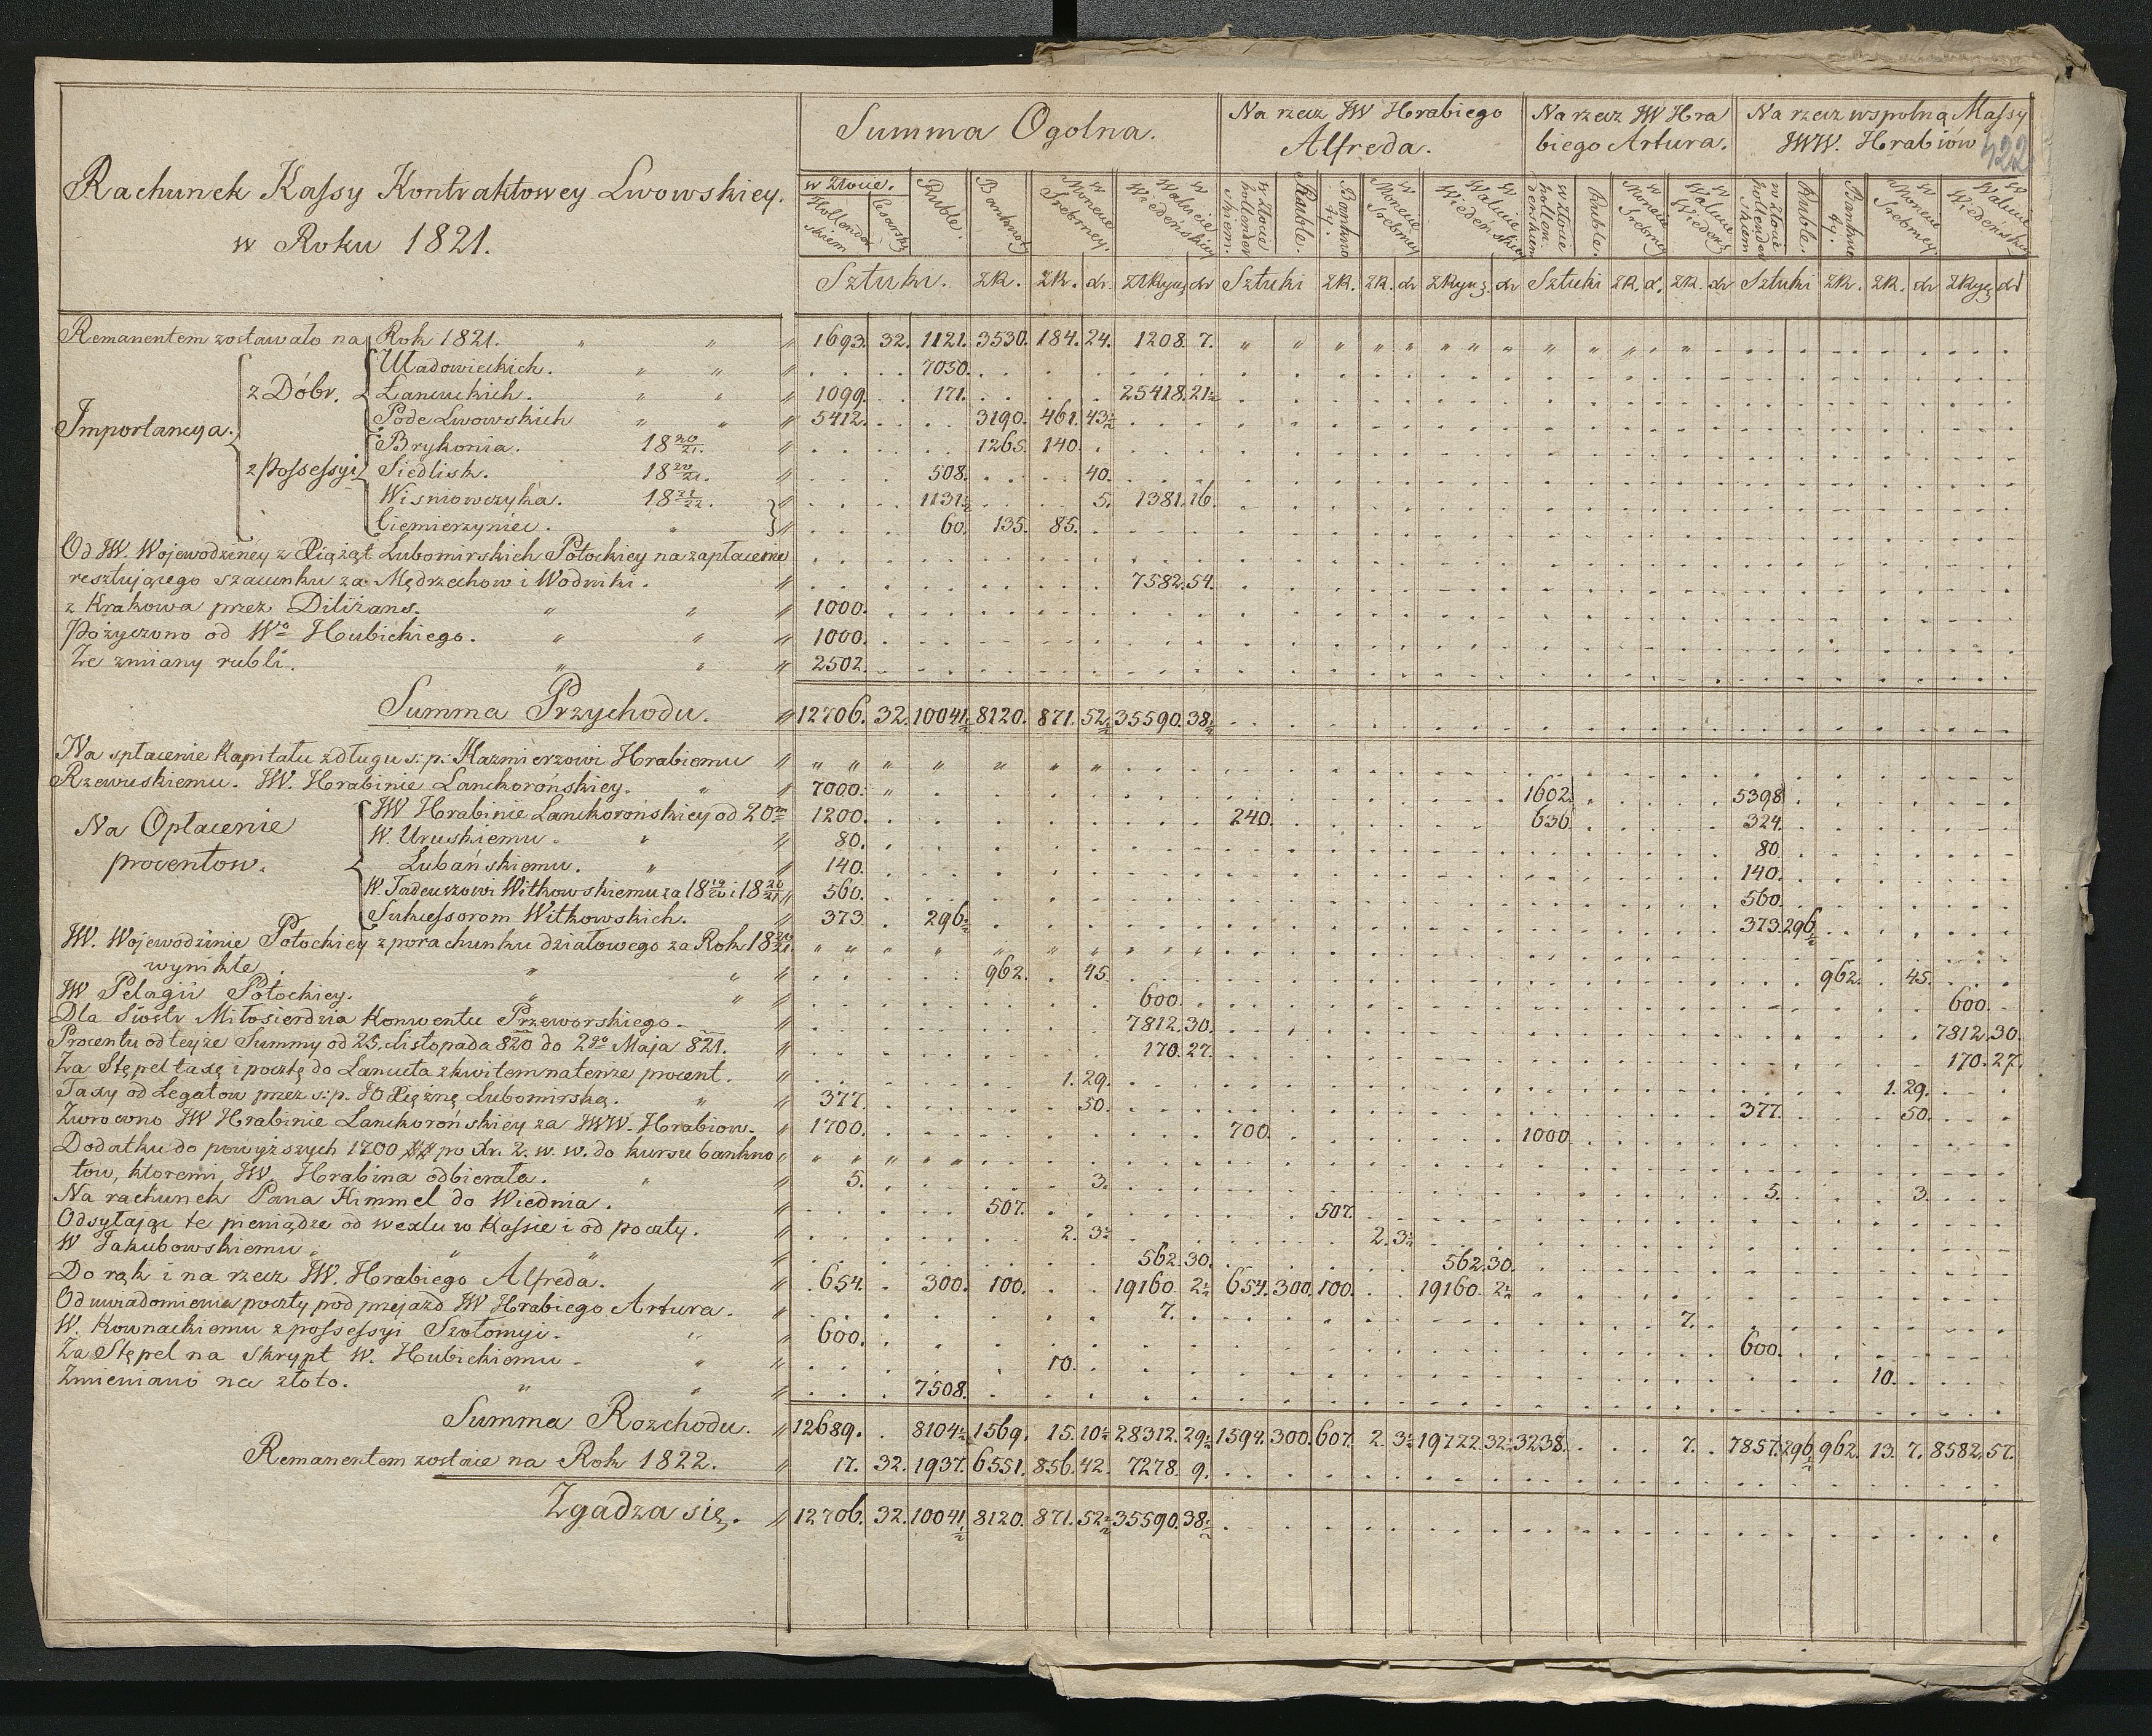 Rachunek Kassy Kontraktowey Lwowskiey.
w Roku 1821.
Summa Ogolna.
Na rzecz JW Hrabiego
Alfreda.
Na rzecz JW Hra
biego Artura.
Na rzecz wspolną Massy
JWW. Hrabiów
422
w Złocie. Hollender skiem Cesarskiem Ruble. Banknoty w Monecie Srebrney. w Walucie Wiedenskiey w Złocie hollender skiem. Ruble. Bankno ty. w Monecie Srebrney w Walucie Wiedenskiey w Złocie hollen derskiem Ruble. w Monecie Srebrney w Walucie Wieden: w Złocie hollender skiem Ruble. Bankno ty. w Monecie Srebrney w Walucie Wiedenskiey
Sztuki. ZR. ZR. dr. ZRyn dr Sztuki ZR. ZR. dr ZRyn. dr Sztuki ZR. d. ZR. dr Sztuki ZR. ZR. dr ZRyn dr
Remanentem zostawało na Rok 1821. 1693. 32. 1121. 3530. 184. 24. 1208. 7.
Importancya. z Dóbr. Wladowieckich. 7050.
Lancuckich. 1099. 171. 25418. 21½
Pode Lwowskich 5412. 3190. 461. 43½
z Possessyi Brykonia. 18 20/21. 1265. 140.
Siedlisk. 18 20/21. 508. 40.
Wisniowczyka. 18 21/22. 1131½ 5. 1381. 16.
Ciemierzyniec. 60. 135. 85.
Od JW. Wojewodziney z Xiążąt Lubomirskich Potockiey na zapłacenie
resztuiącego szacunku za Mędrzechow i Wodniki. 7582. 54.
z Krakowa przez Diliżans. 1000.
Pożyczono od Wgo Hubickiego. 1000.
Ze zmiany rubli. 2502.
Summa Przychodu. 12706. 32. 10041½ 8120. 871. 52½ 35590. 38½
Na spłacenie Kapitału z długu s: p: Kazmierzowi Hrabiemu
Rzewuskiemu. JW. Hrabinie Lanckorońskiey. 7000. 1602. 5398
Na Opłacenie
procentow.
JW Hrabinie Lanckorońskiey od 20m 1200. 240. 636. 324.
W. Uruskiemu. 80. 80.
Lubańskiemu. 140. 140.
W. Tadeuszowi Witkowskiemu za 18 19/20 i 18 20/21 560. 560.
Sukcessorom Witkowskich. 373. 296½ 373. 296½
JW. Wojewodzinie Potockiey z porachunku działowego za Rok 18 20/21
wynikłe 962. 45. 962. 45.
JW Pelagii Potockiey. 600. 600.
Dla Siostr Miłosierdzia Konwentu Przeworskiego. 7812. 30. 7812. 30.
Procentu od teyże Summy od 25. Listopada 820 do 2go Maja 821. 170. 27. 170. 27.
Za Stępel taxę i pocztę do Lancuta z kwitem na tenże procent. 1. 29. 1. 29.
Taxy od Legatow przez s: p. JO Xiężnę Lubomirską. 377. 50. 377. 50.
Zwrocono JW Hrabinie Lanckorońskiey za JWW. Hrabiow. 1700. 700. 1000.
Dodatku do powyższych 1700 ## po Xr. 2. w. w. do kursu bankno
tow, ktoremi JW. Hrabina odbierała. 5. 3. 5. 3.
Na rachunek Pana Kimmel do Wiednia. 507. 507.
Odsyłaiąc te pieniądze od wexlu w Kassie i od poczty. 2. 3½ 2. 3½
W Jakubowskiemu. 562. 30. 562. 30.
Do rąk i na rzecz JW. Hrabiego Alfreda. 654. 300. 100. 19160. 2½ 654. 300. 100. 19160. 2½
Od uwiadomienia poczty pod przejazd JW Hrabiego Artura. 7. 7.
W. Kownackiemu z possessyi Szołomyi. 600. 600.
Za Stępel na Skrypt W. Hubickiemu. 10. 10.
Zmieniano na złoto. 7508.
Summa Rozchodu. 12689. 8104½ 1569. 15. 10½ 28312. 29½ 1594. 300. 607. 2. 3½ 19722. 32½ 3238. 7. 7857. 296½ 962. 13. 7. 8582. 57.
Remanentem zostaie na Rok 1822. 17. 32. 1937. 6551. 856. 42. 7278. 9.
Zgadza się. 12706. 32. 10041½ 8120. 871. 52½ 35590. 38½